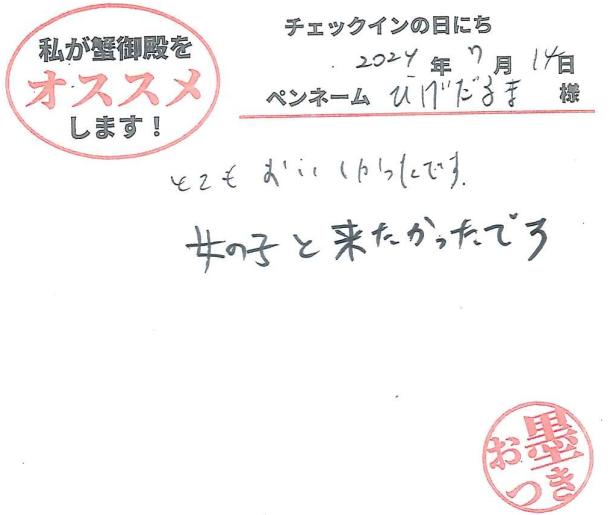 私が蟹御殿を
オススメ
します！
チェックインの日にち
2024年7月14日
ペンネーム ひげだるま 様
とてもおいしかったです。
女の子と来たかったでろ
お墨つき